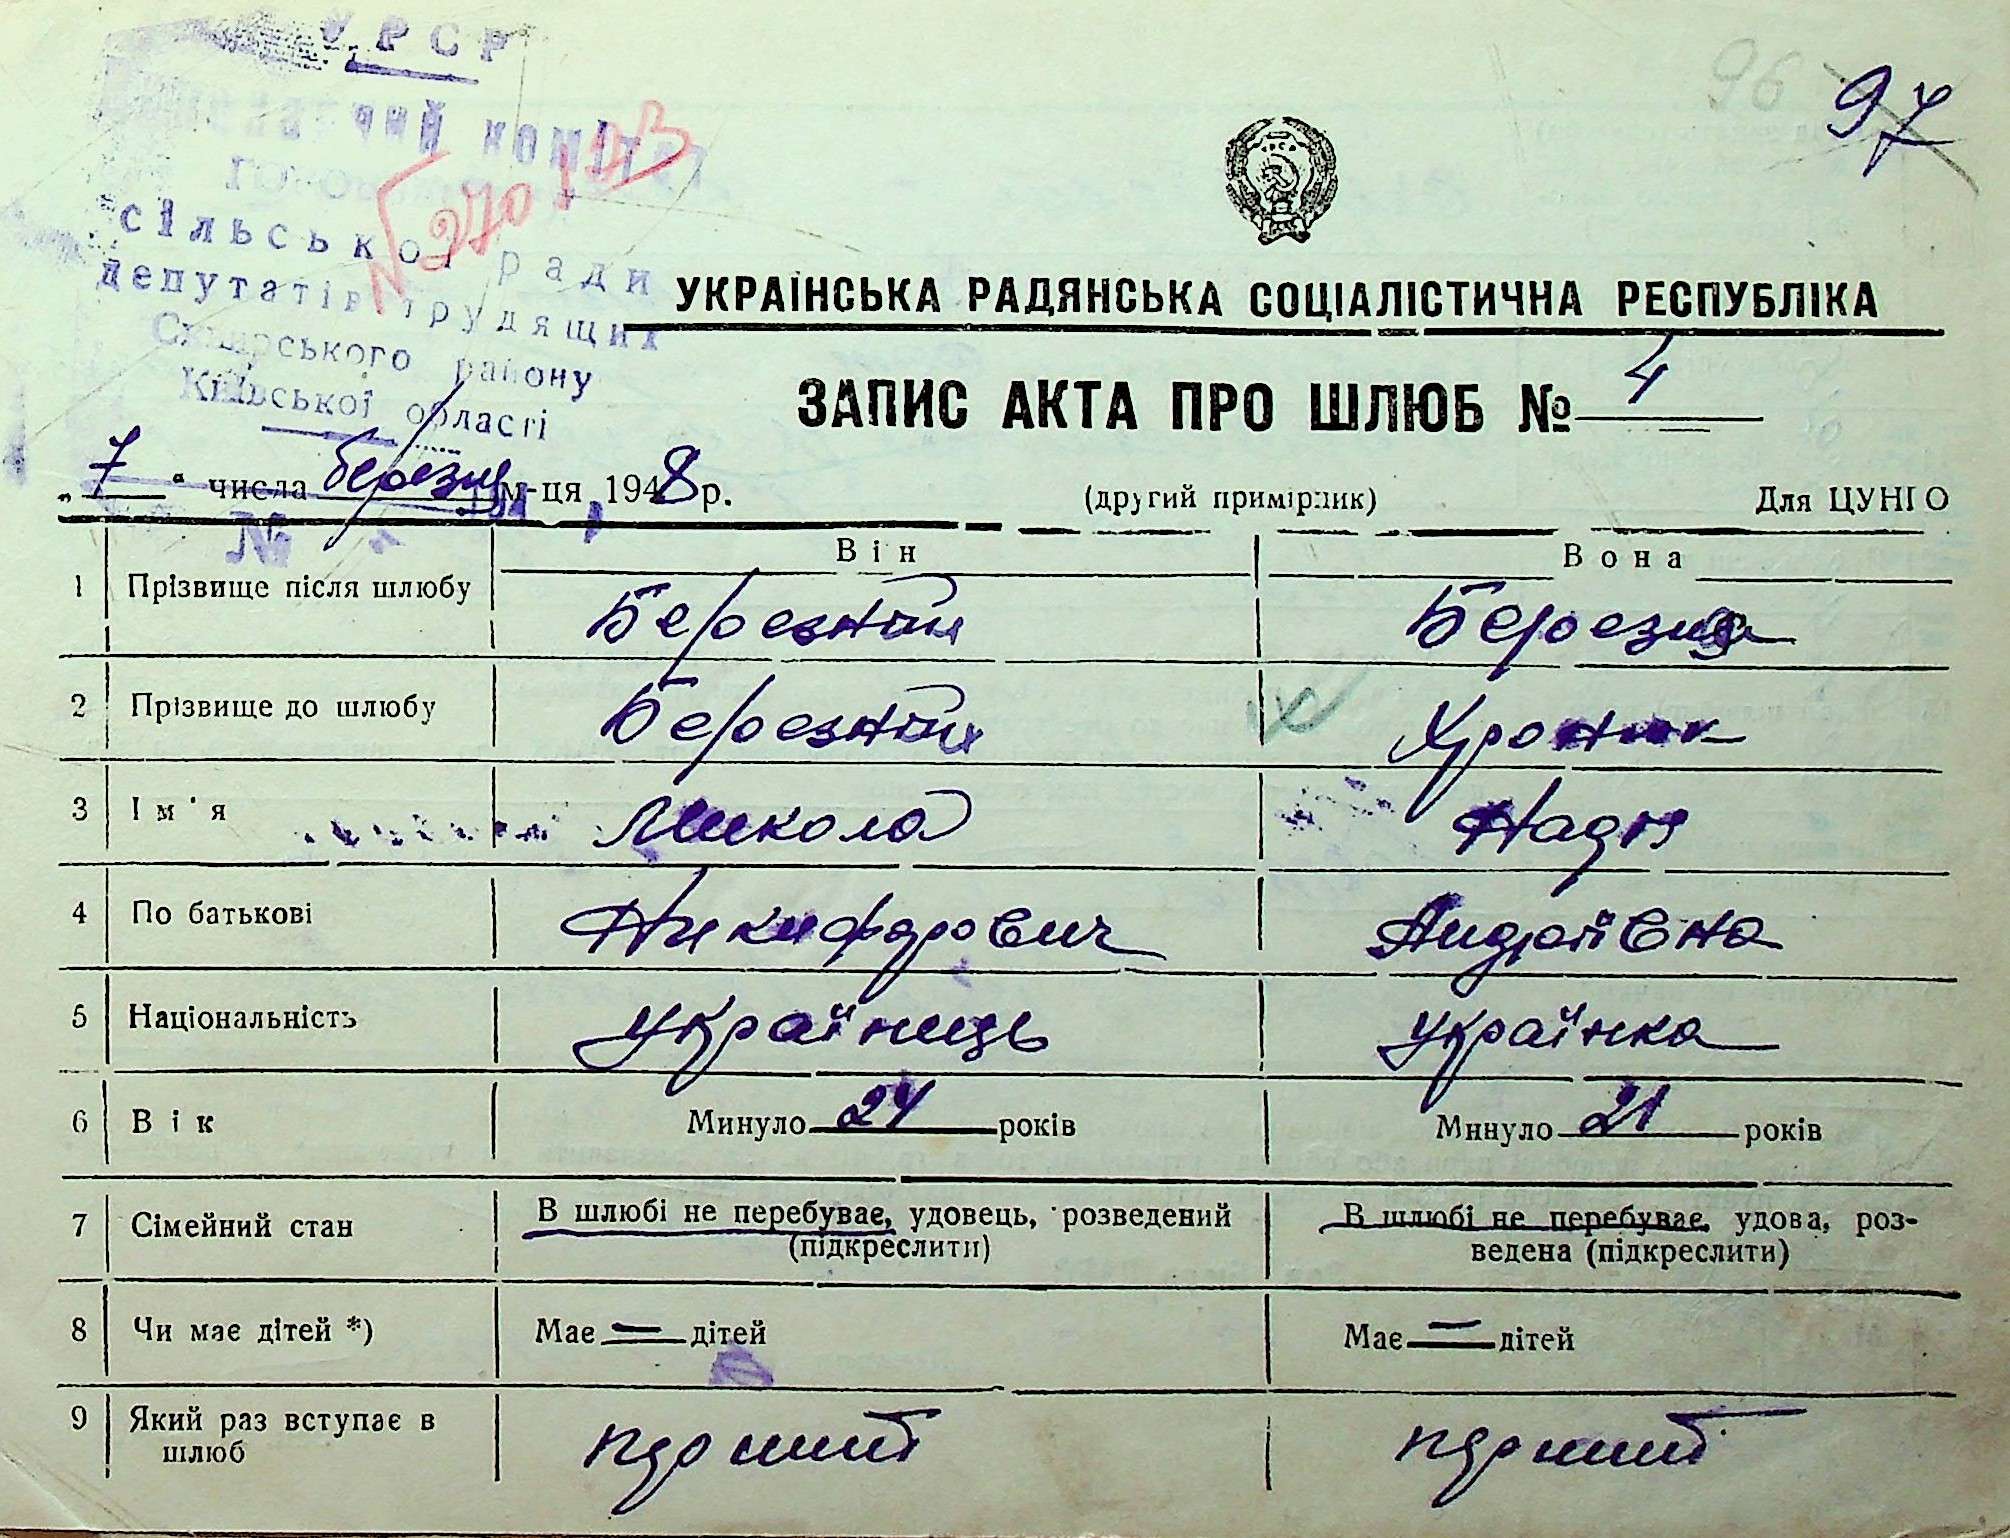 УРСР
Виконавчий комітет
сільської ради
депутатів трудящих
Сквирського району
Київської області
№ 270
96
97
УКРАЇНСЬКА РАДЯНСЬКА СОЦІАЛІСТИЧНА РЕСПУБЛІКА
ЗАПИС АКТА ПРО ШЛЮБ № 4
„7“ числа березня м-ця 1948 р. (другий примірник) Для ЦУНГО
№
Він Вона
1 Прізвище після шлюбу Березний Березна
2 Прізвище до шлюбу Березний Хроник
3 Ім'я Микола Надя
4 По батькові Никифорович Андріївна
5 Національність Українець Українка
6 Вік Минуло 24 років Минуло 21 років
7 Сімейний стан В шлюбі не перебуває, удовець, розведений (підкреслити) В шлюбі не перебуває, удова, роз-
ведена (підкреслити)
8 Чи має дітей *) Має — дітей Має — дітей
9 Який раз вступає в шлюб перший перший